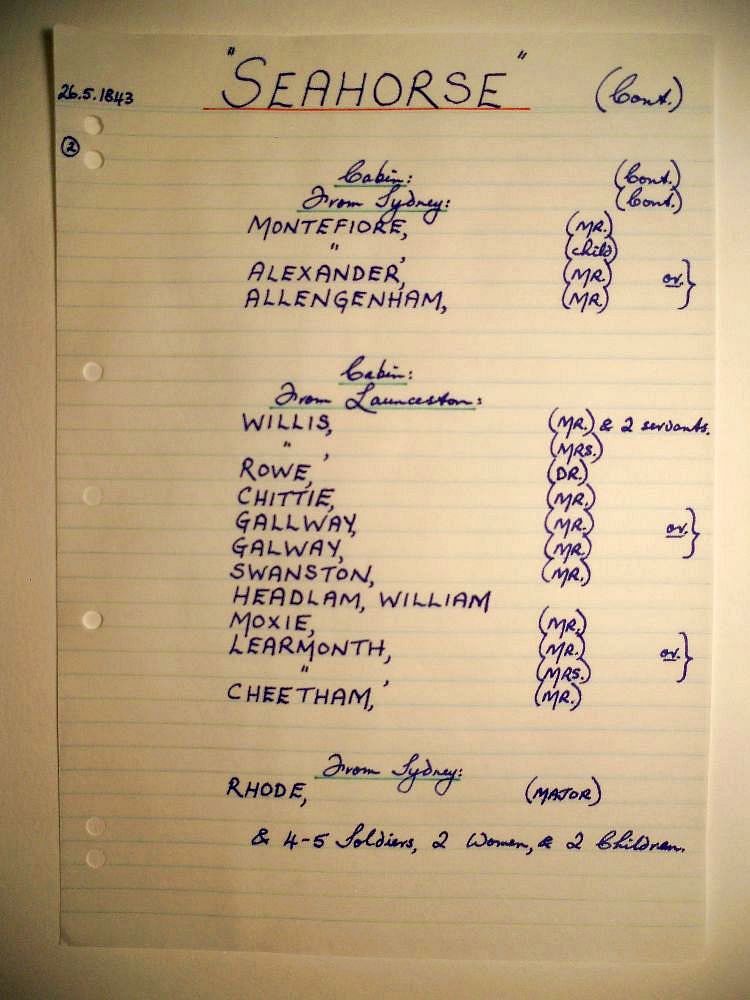 "SEAHORSE" (Cont.)
26.5.1843
2
Cabin: (Cont.)
From Sydney: (Cont.)
MONTEFIORE, (MR.)
" , (child)
ALEXANDER, (MR.) or }
ALLENGENHAM, (MR)
Cabin:
From Launceston:
WILLIS, (MR.) & 2 servants.
" , (MRS.)
ROWE, (DR.)
CHITTIE, (MR.)
GALLWAY, (MR.) or }
GALWAY, (MR.)
SWANSTON, (MR.)
HEADLAM, WILLIAM
MOXIE, (MR.)
LEARMONTH, (MR.) or }
" , (MRS.)
CHEETHAM, (MR.)
From Sydney:
RHODE, (MAJOR)
& 4-5 Soldiers, 2 Women, & 2 Children.